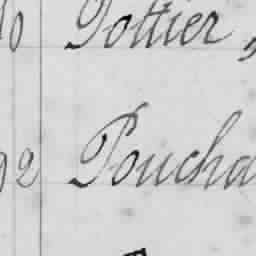 0 Pottier,
92 Poucha